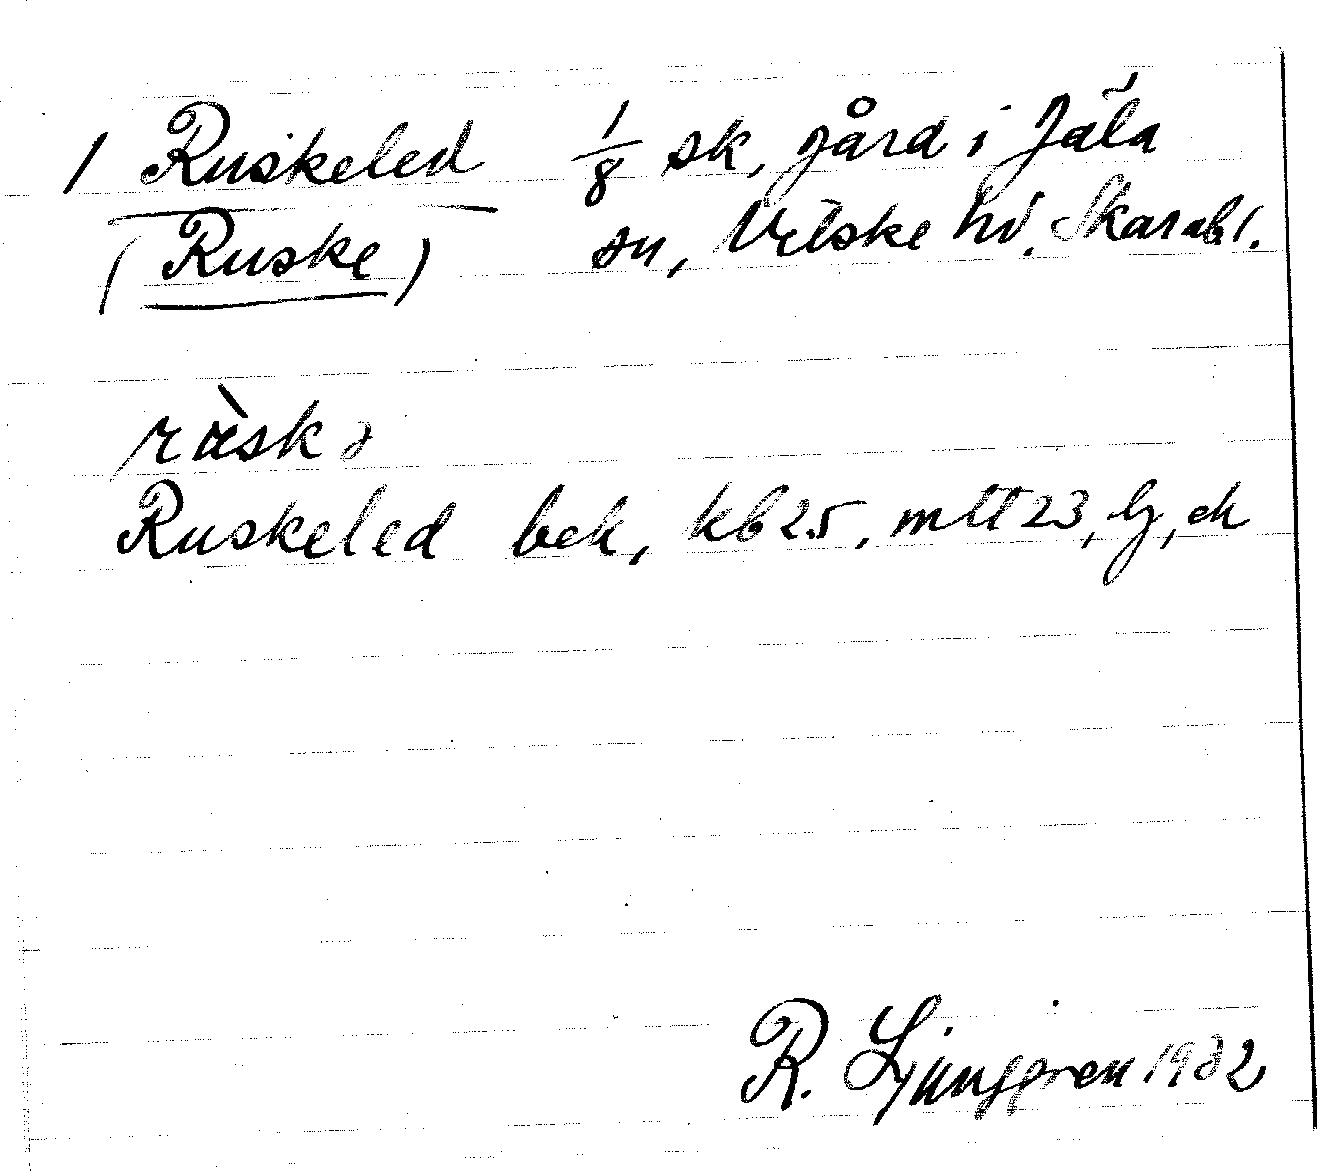 1 Ruskeled 1/8 sk, gård i Jäla
(Ruske) sn, Vilske hd. Skarabl.
ràskə
Ruskeled bek, kb 25, mtl 23, lj, ek
R. Ljunggren 1932